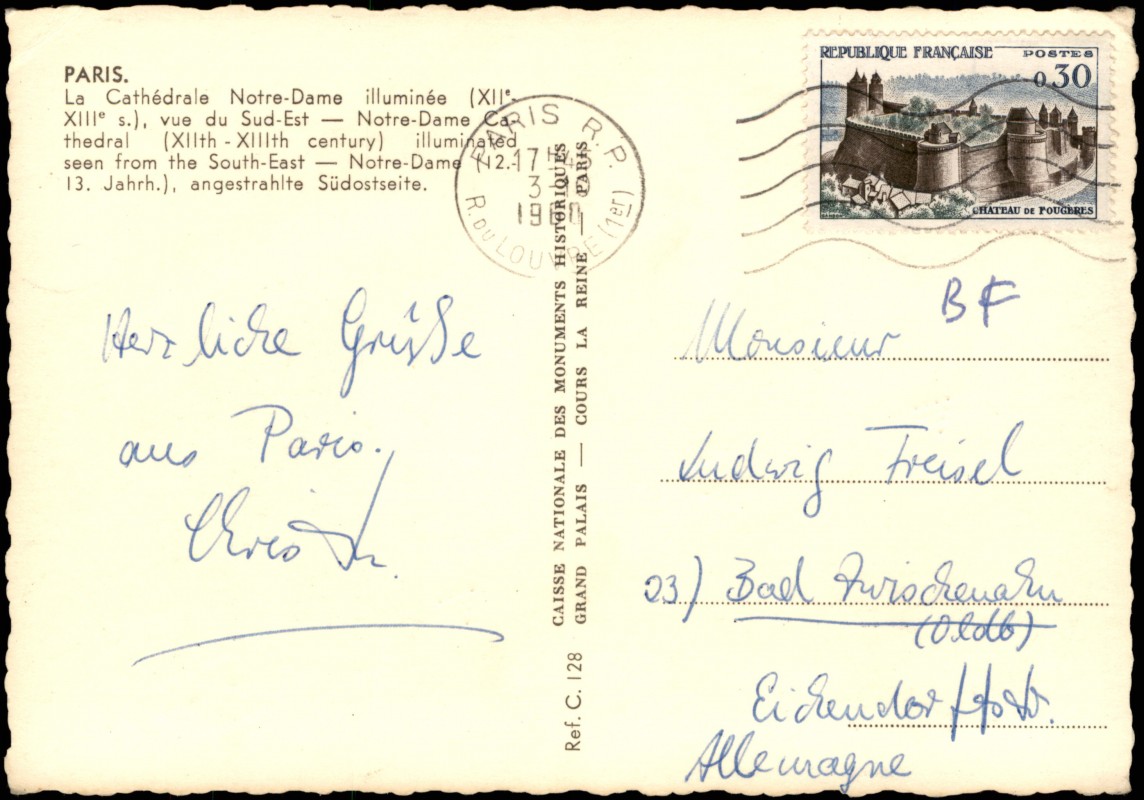 PARIS.
La Cathédrale Notre-Dame illuminée (XIIe-
XIIIe s.), vue du Sud-Est — Notre-Dame Ca-
thedral (XIIth - XIIIth century) illuminated
seen from the South-East — Notre-Dame (12.-
13. Jahrh.), angestrahlte Südostseite.
PARIS R.P.
17H45
R. DU LOUVRE (1er)
REPUBLIQUE FRANÇAISE POSTES
0,30
CHATEAU DE FOUGERES
Herzliche Grüße
aus Paris.
Ref. C. 128
CAISSE NATIONALE DES MONUMENTS HISTORIQUES
GRAND PALAIS — COURS LA REINE — PARIS
BF
Monsieur
Ludwig Freisel
23) Bad Zwischenahn
(Oldb)
Eichendorffstr.
Allemagne